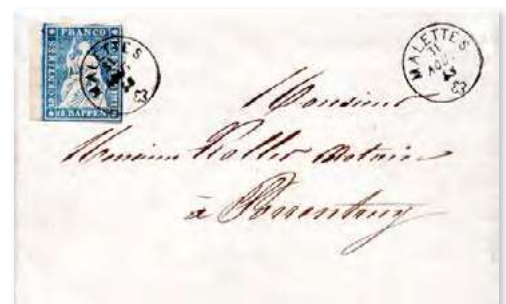 FRANCO
10 CENTIMES
10 RAPPEN
MALETTES
MALETTES
31
AOUT
Monsieur
Monsieur Kohler Notaire
à Porrentruy